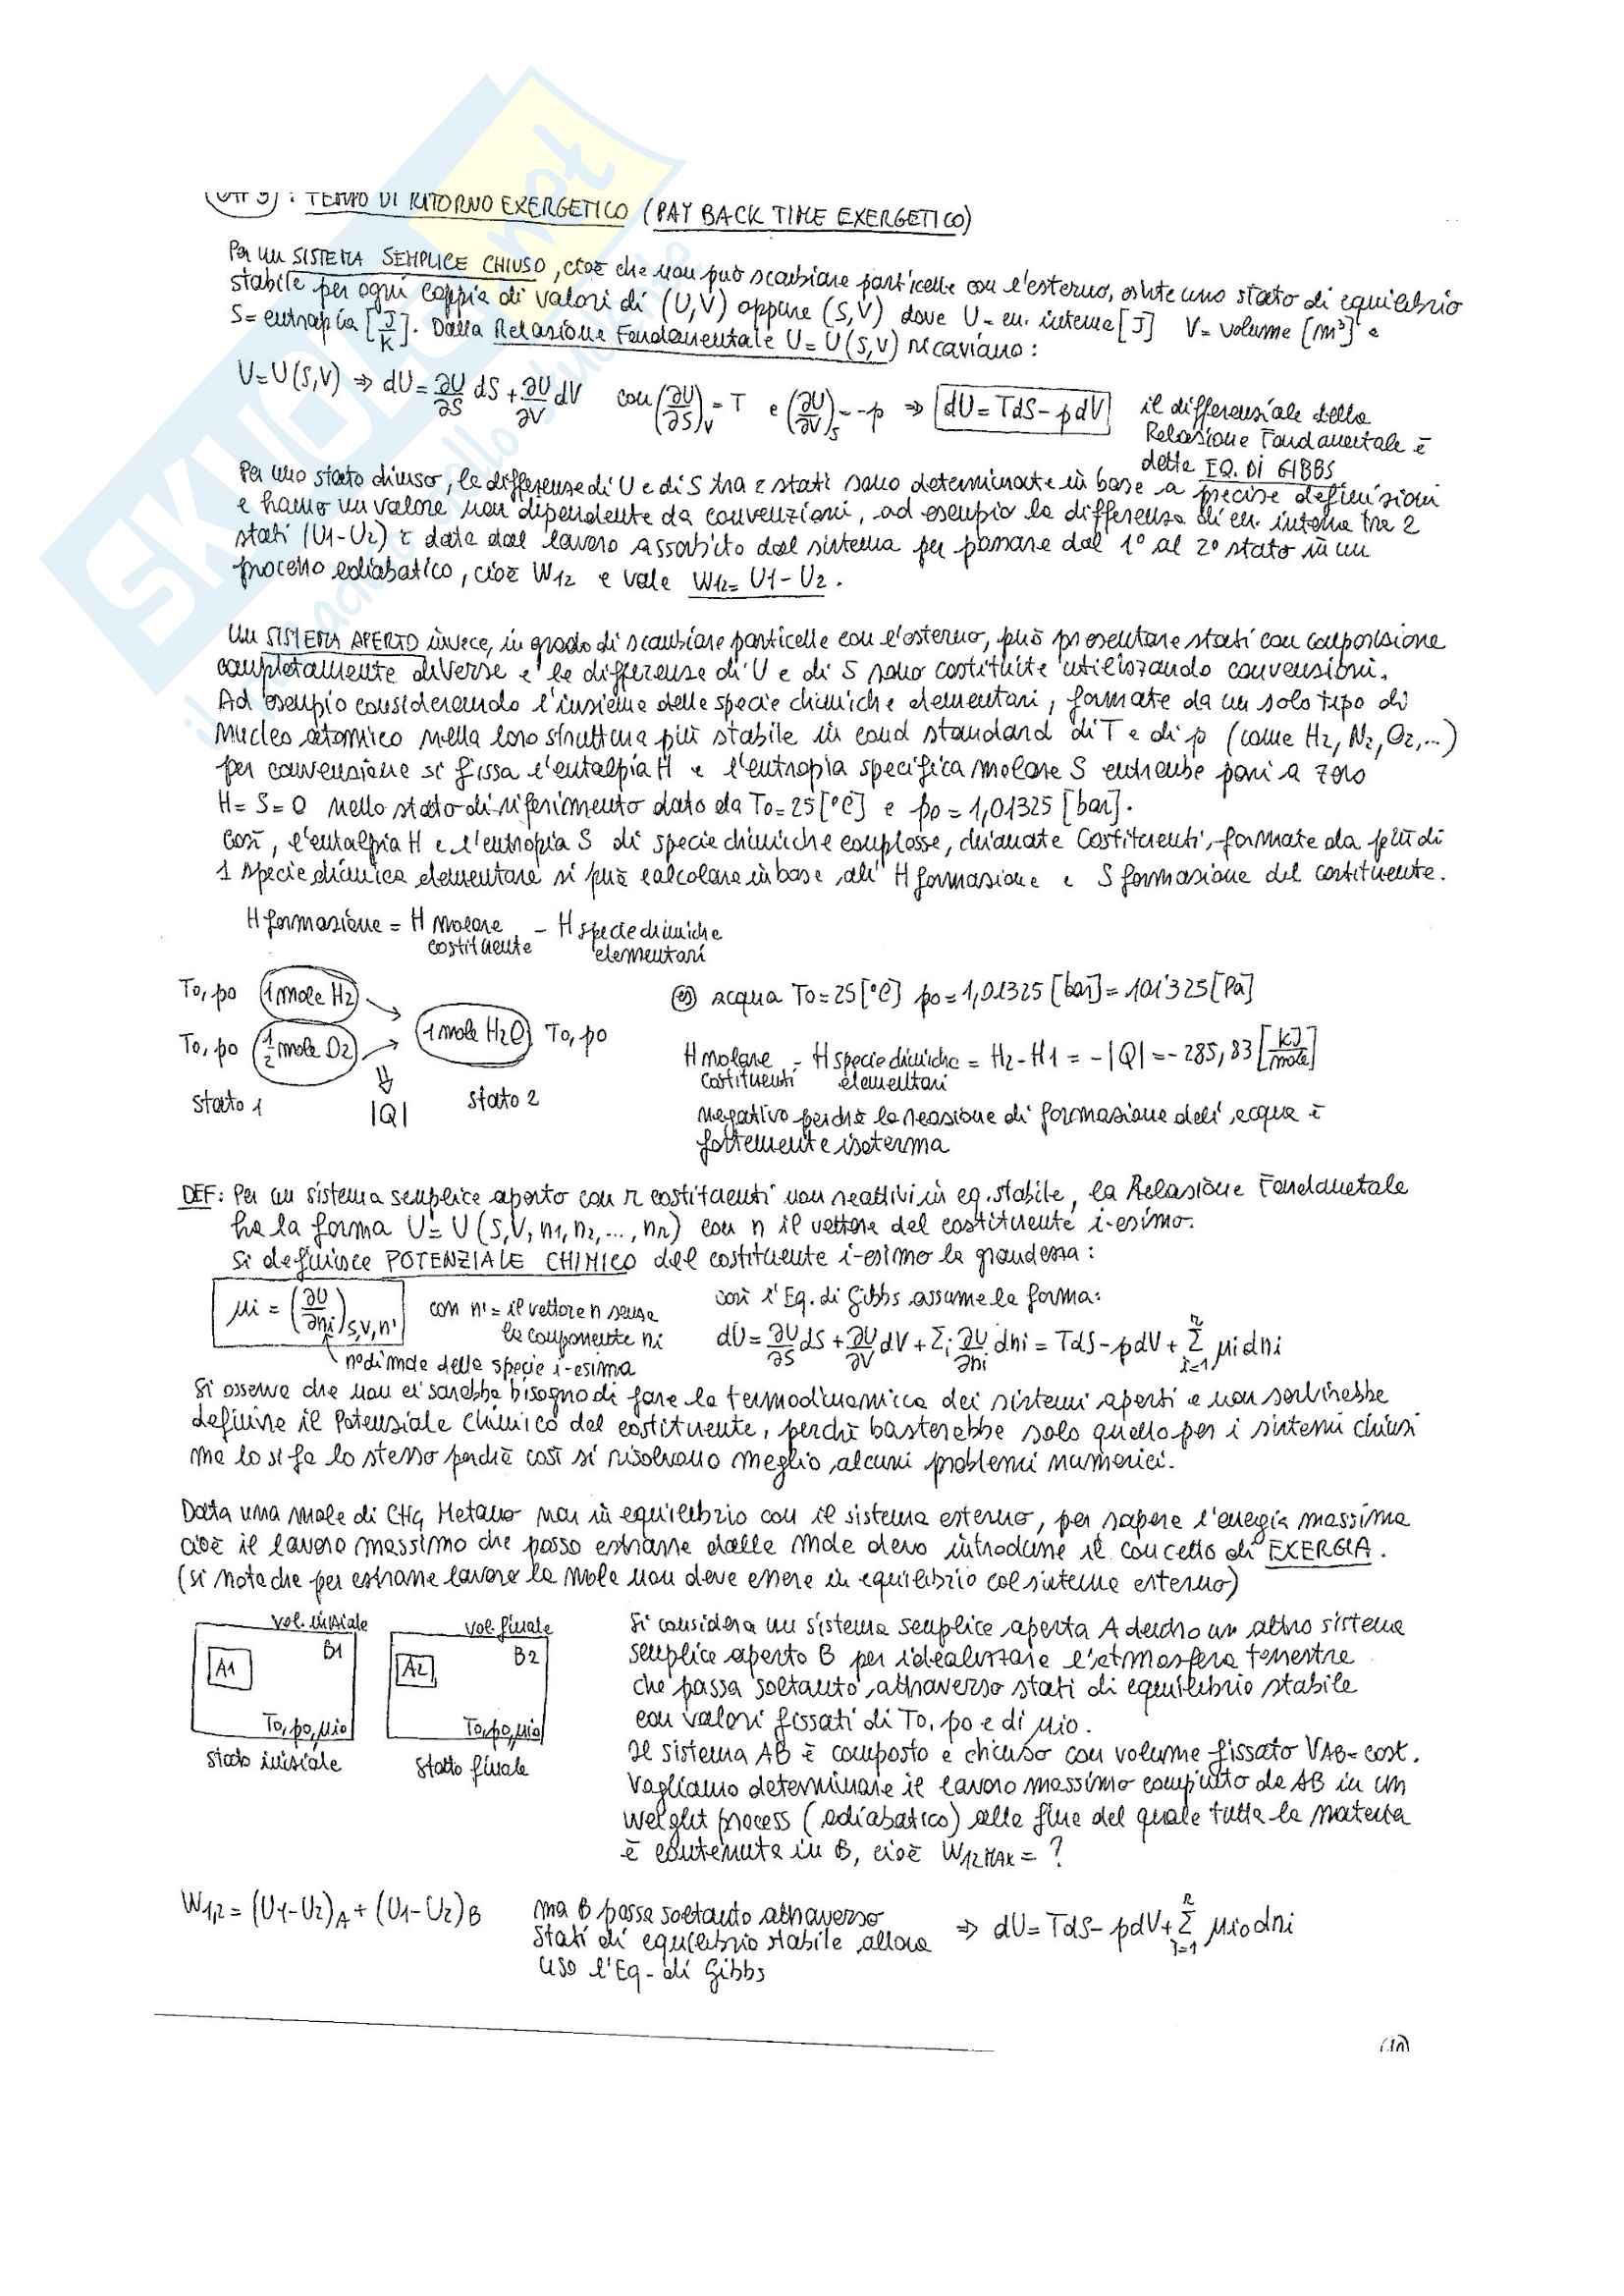 : TEMPO DI RITORNO EXERGETICO (PAY BACK TIME EXERGETICO)
Per un SISTEMA SEMPLICE CHIUSO, cioè che non può scambiare particelle con l'esterno, esiste uno stato di equilibrio
stabile per ogni coppia di valori di (U,V) oppure (S,V) dove U = en. interna [J] V = volume [m³] e
S = entropia [J/K]. Dalla Relazione Fondamentale U = U(S,V) ricaviamo:
U=U(S,V) ⇒ dU = ∂U/∂S dS + ∂U/∂V dV con (∂U/∂S)V = T e (∂U/∂V)S = -p ⇒ dU = TdS - pdV il differenziale della
Relazione Fondamentale è
detta EQ. DI GIBBS
Per uno stato chiuso, le differenze di U e di S tra 2 stati sono determinate in base a precise definizioni
e hanno un valore non dipendente da convenzioni, ad esempio la differenza di en. interna tra 2
stati (U1-U2) è data dal lavoro assorbito dal sistema per passare dal 1° al 2° stato in un
processo adiabatico, cioè W12 e vale W12 = U1 - U2.
Un SISTEMA APERTO invece, in grado di scambiare particelle con l'esterno, può presentare stati con composizione
completamente diverse e le differenze di U e di S sono costituite utilizzando convenzioni.
Ad esempio considerando l'insieme delle specie chimiche elementari, formate da un solo tipo di
nucleo atomico nella loro struttura più stabile in cond standard di T e di p (come H2, N2, O2,...)
per convenzione si fissa l'entalpia H e l'entropia specifica molare S entrambe pari a zero
H = S = 0 nello stato di riferimento dato da To = 25 [°C] e po = 1,01325 [bar].
Così, l'entalpia H e l'entropia S di specie chimiche complesse, chiamate Costituenti, formate da più di
1 specie chimica elementare si può calcolare in base all' H formazione e S formazione del costituente.
H formazione = H molare costituente - H specie chimiche elementari
To, po 1 mole H2
To, po 1/2 mole O2
1 mole H2O To, po
stato 1 |Q| stato 2
es acqua To = 25 [°C] po = 1,01325 [bar] = 101325 [Pa]
H molare costituenti - H specie chimiche elementari = H2 - H1 = -|Q| = -285,83 [kJ/mole]
negativo perchè la reazione di formazione dell'acqua è
fortemente isoterma
DEF: Per un sistema semplice aperto con r costituenti non reattivi in eq. stabile, la Relazione Fondametale
ha la forma U = U(S,V,n1,n2,...,nr) con n il vettore del costituente i-esimo.
Si definisce POTENZIALE CHIMICO del costituente i-esimo la grandezza:
μi = (∂U/∂ni)S,V,n' con n' = il vettore n senza
la componente ni
n° di mole della specie i-esima
così l'Eq. di Gibbs assume la forma:
dU = ∂U/∂S dS + ∂U/∂V dV + Σi ∂U/∂ni dni = TdS - pdV + Σ(i=1..r) μi dni
Si osserva che non ci sarebbe bisogno di fare la termodinamica dei sistemi aperti e non servirebbe
definire il Potenziale Chimico del costituente, perchè basterebbe solo quello per i sistemi chiusi
ma lo si fa lo stesso perchè così si risolvono meglio alcuni problemi numerici.
Data una mole di CH4 Metano non in equilibrio con il sistema esterno, per sapere l'energia massima
cioè il lavoro massimo che posso estrarre dalla mole devo introdurre il concetto di EXERGIA.
(si nota che per estrarre lavoro la mole non deve essere in equilibrio col sistema esterno)
vol. iniziale vol. finale
A1 B1 A2 B2
To, po, μio To, po, μio
stato iniziale stato finale
Si considera un sistema semplice aperto A dentro un altro sistema
semplice aperto B per idealizzare l'atmosfera terrestre
che passa soltanto attraverso stati di equilibrio stabile
con valori fissati di To, po e di μio.
Il sistema AB è composto e chiuso con volume fissato VAB = cost.
Vogliamo determinare il lavoro massimo compiuto da AB in un
weight process (adiabatico) alla fine del quale tutta la materia
è contenuta in B, cioè W12MAX = ?
W1,2 = (U1-U2)A + (U1-U2)B ma B passa soltanto attraverso
stati di equilibrio stabile allora
uso l'Eq. di Gibbs
⇒ dU = TdS - pdV + Σ(i=1..r) μio dni
SKUOLA.not